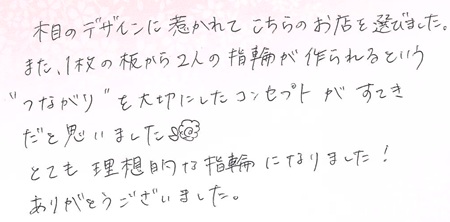 木目のデザインに惹かれてこちらのお店を選びました。
また、1枚の板から2人の指輪が作られるという
"つながり"を大切にしたコンセプトがすてき
だと思いました
とても理想的な指輪になりました！
ありがとうございました。